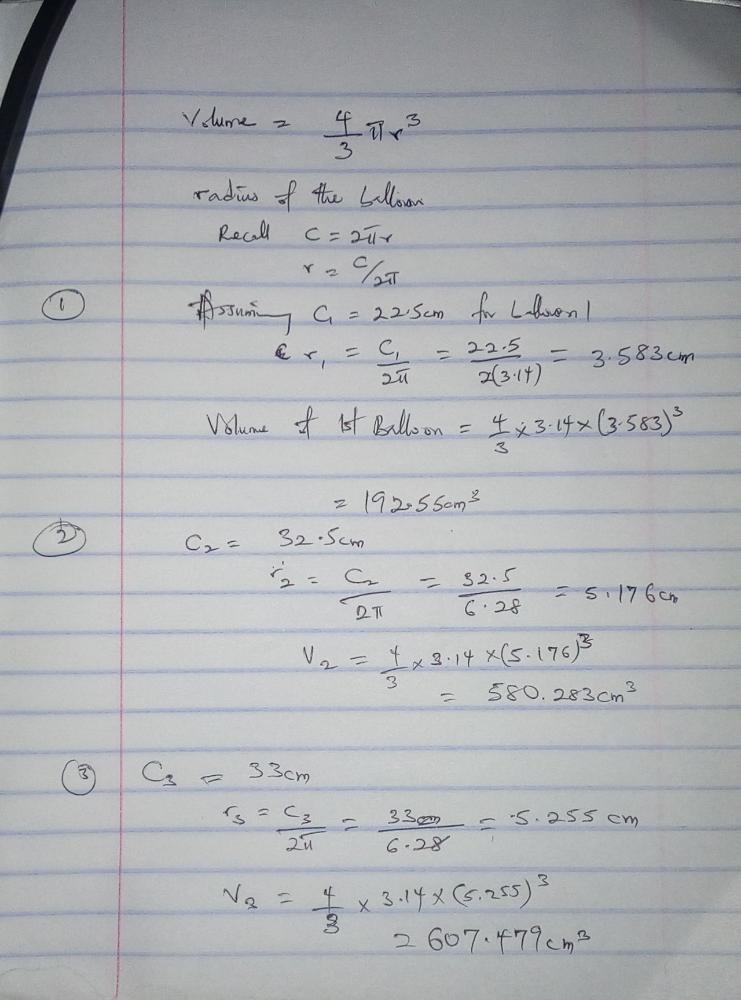 Volume = 4/3 πr³
radius of the balloon
Recall C = 2πr
r = C/2π
① Assuming C₁ = 22.5cm for balloon 1
r₁ = C₁/2π = 22.5/2(3.14) = 3.583cm
Volume of 1st Balloon = 4/3 × 3.14 × (3.583)³
= 192.55cm³
② C₂ = 32.5cm
r₂ = C₂/2π = 32.5/6.28 = 5.176cm
V₂ = 4/3 × 3.14 × (5.176)³
= 580.283cm³
③ C₃ = 33cm
r₃ = C₃/2π = 33cm/6.28 = 5.255 cm
V₂ = 4/3 × 3.14 × (5.255)³
= 607.479cm³